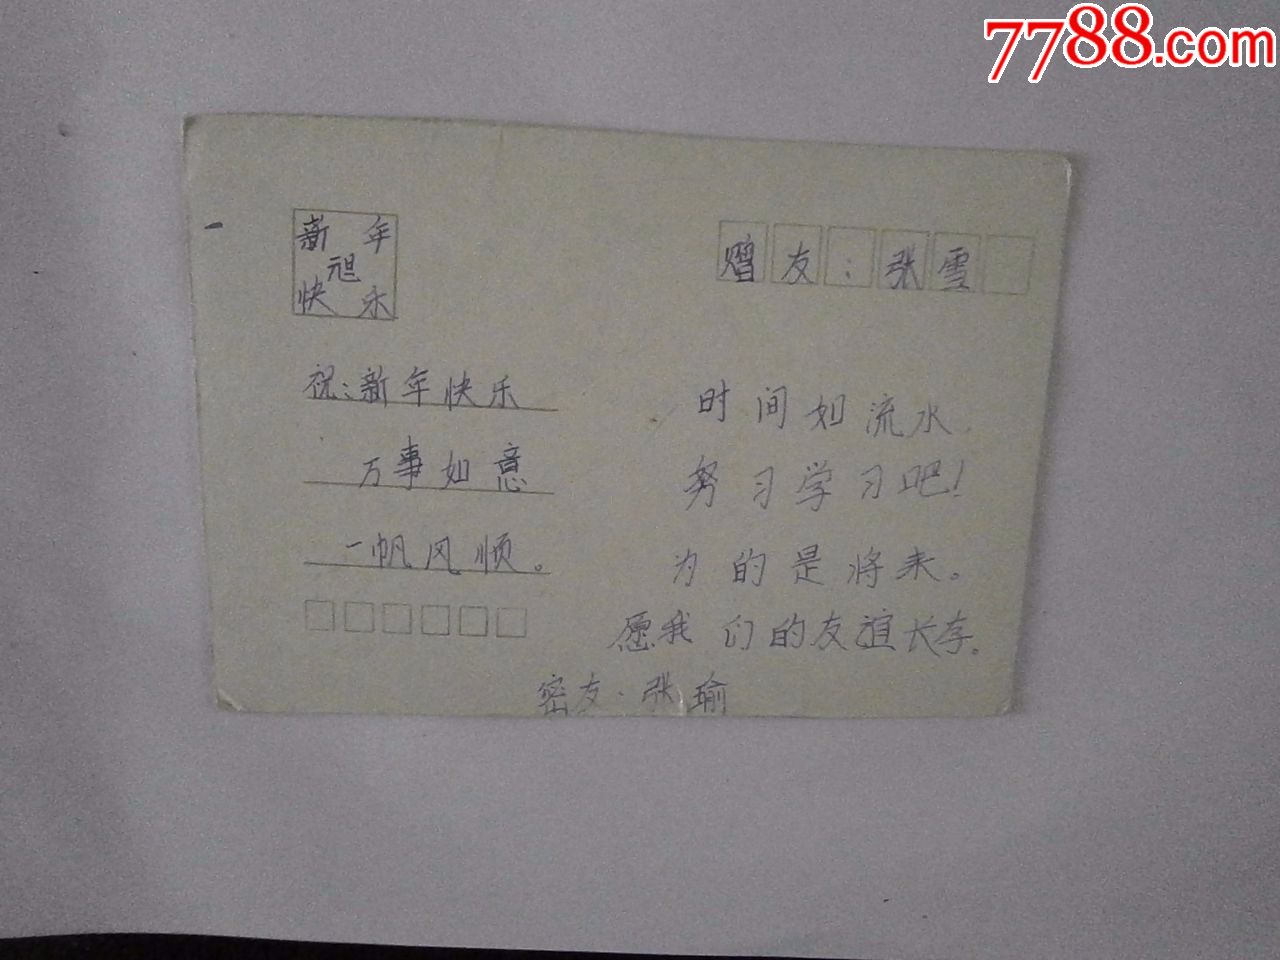 7788.com
新年
元旦
快乐
赠友：张雪
祝：新年快乐
万事如意
一帆风顺。
时间如流水，
努习学习吧！
为的是将来。
愿我们的友谊长存。
密友·张瑜